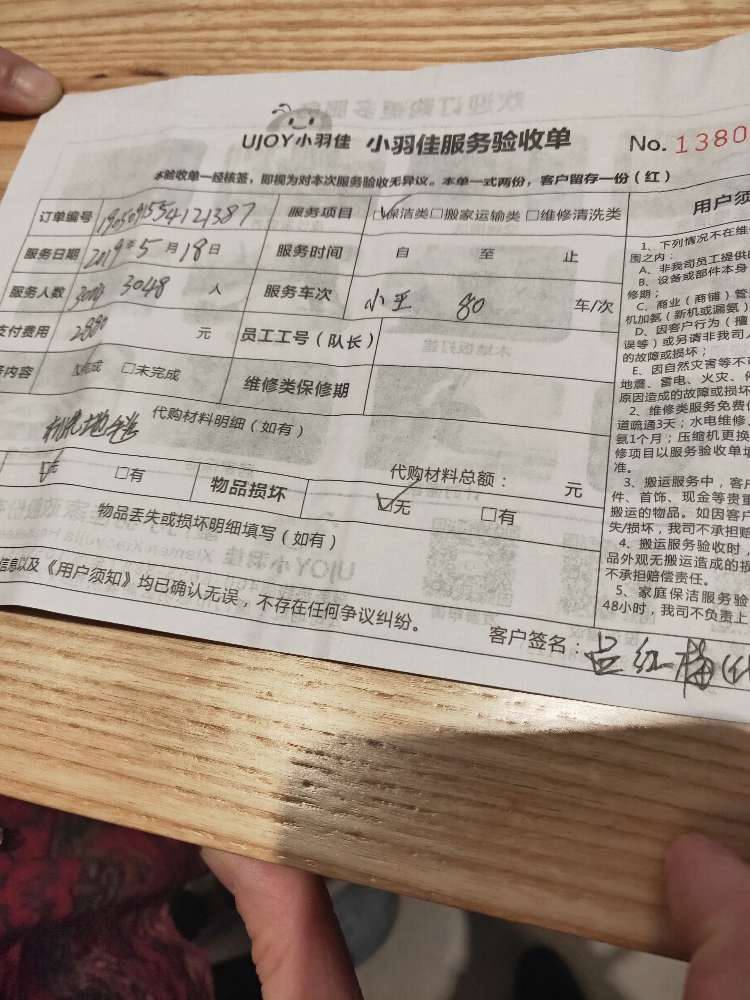 UJOY小羽佳 小羽佳服务验收单 No. 1380
本验收单一经核签，即视为对本次服务验收无异议。本单一式两份，客户留存一份（红）
订单编号 190509554121387 服务项目 ☑保洁类□搬家运输类□维修清洗类
服务日期 2019年5月18日 服务时间 自 至 止
服务人数 3048 人 服务车次 小王 80 车/次
支付费用 2880 元 员工工号（队长）
内容 ☑完成 □未完成 维修类保修期
代购材料明细（如有）
代购材料总额： 元
☑无 □有 物品损坏 ☑无 □有
物品丢失或损坏明细填写（如有）
信息以及《用户须知》均已确认无误，不存在任何争议纠纷。
客户签名：吕红梅
用户须
1、下列情况不在维
围之内：
A、非我司员工提供
B、设备或部件本身
修期；
C、商业（商铺）管
机加氨（新机或漏氨）
D、因客户行为（擅
误等）或另请非我司人
的故障或损坏；
E、因自然灾害等不可
地震、雷电、火灾、
原因造成的故障或损坏
2、维修类服务免费
道疏通3天；水电维修、
氨1个月；压缩机更换
修项目以服务验收单
准。
3、搬运服务中，客户
件、首饰、现金等贵重
搬运的物品。如因客户
失/损坏，我司不承担赔
4、搬运服务验收时，
品外观无搬运造成的损
不承担赔偿责任。
5、家庭保洁服务验
48小时，我司不负责上